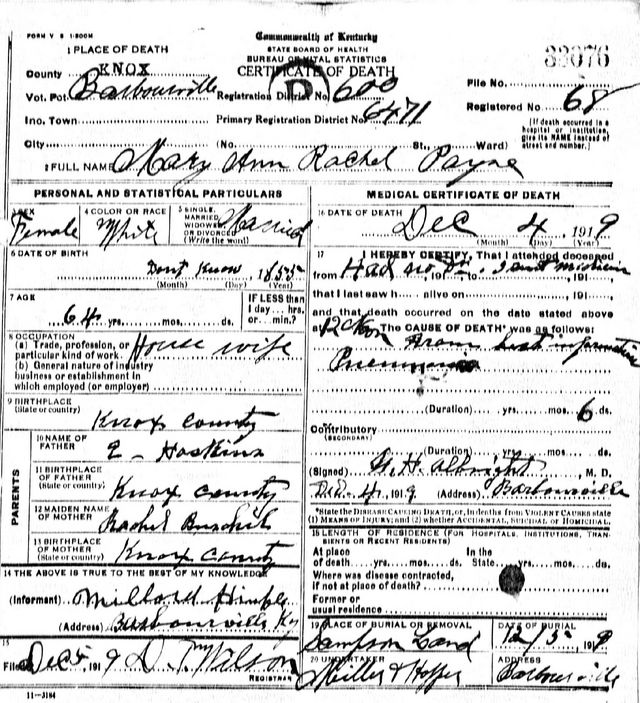 FORM V S 1-500M
Commonwealth of Kentucky
STATE BOARD OF HEALTH
BUREAU OF VITAL STATISTICS
CERTIFICATE OF DEATH
33076
1 PLACE OF DEATH
County KNOX
Vot. Pct. Barbourville Registration District No. 600 File No.
Inc. Town Primary Registration District No. 6471 Registered No. 68
City (No. St., Ward)
(If death occurred in a hospital or institution, give its NAME instead of street and number.)
2 FULL NAME Mary Ann Rachel Payne
PERSONAL AND STATISTICAL PARTICULARS
3 SEX Female
4 COLOR OR RACE White
5 SINGLE, MARRIED, WIDOWED OR DIVORCED (Write the word) Married
6 DATE OF BIRTH
Dont Know 1855
(Month) (Day) (Year)
7 AGE
64 yrs. mos. ds.
IF LESS than 1 day... hrs. or... min.?
8 OCCUPATION
(a) Trade, profession, or particular kind of work. House wife
(b) General nature of industry business or establishment in which employed (or employer)
9 BIRTHPLACE
(State or country) Knox County
PARENTS
10 NAME OF FATHER Hoskins
11 BIRTHPLACE OF FATHER (State or country) Knox County
12 MAIDEN NAME OF MOTHER Rachel
13 BIRTHPLACE OF MOTHER (State or country) Knox County
14 THE ABOVE IS TRUE TO THE BEST OF MY KNOWLEDGE
(Informant) Millard
(Address) Barbourville Ky
15
Filed Dec 5 1919 D. T. Wilson
REGISTRAR
11-3184
MEDICAL CERTIFICATE OF DEATH
16 DATE OF DEATH Dec 4 1919
(Month) (Day) (Year)
17 I HEREBY CERTIFY, That I attended deceased
from Had no Dr. 191 to 191
that I last saw h alive on 191
and that death occurred on the date stated above
at M. The CAUSE OF DEATH* was as follows:
From best information
Pneumonia
(Duration) yrs. mos. 6 ds.
Contributory
(SECONDARY)
(Duration) yrs. mos. ds.
(Signed) G. H. Albright, M. D.
Dec. 4, 1919 (Address) Barbourville
*State the DISEASE CAUSING DEATH, or, in deaths from VIOLENT CAUSES state (1) MEANS OF INJURY; and (2) whether ACCIDENTAL, SUICIDAL or HOMICIDAL.
18 LENGTH OF RESIDENCE (FOR HOSPITALS, INSTITUTIONS, TRANSIENTS OR RECENT RESIDENTS)
At place of death yrs. mos. ds. In the State yrs. mos. ds.
Where was disease contracted, if not at place of death?
Former or usual residence
19 PLACE OF BURIAL OR REMOVAL Sampson Land
DATE OF BURIAL 12/5 1919
20 UNDERTAKER Miller & Hopper
ADDRESS Barbourville